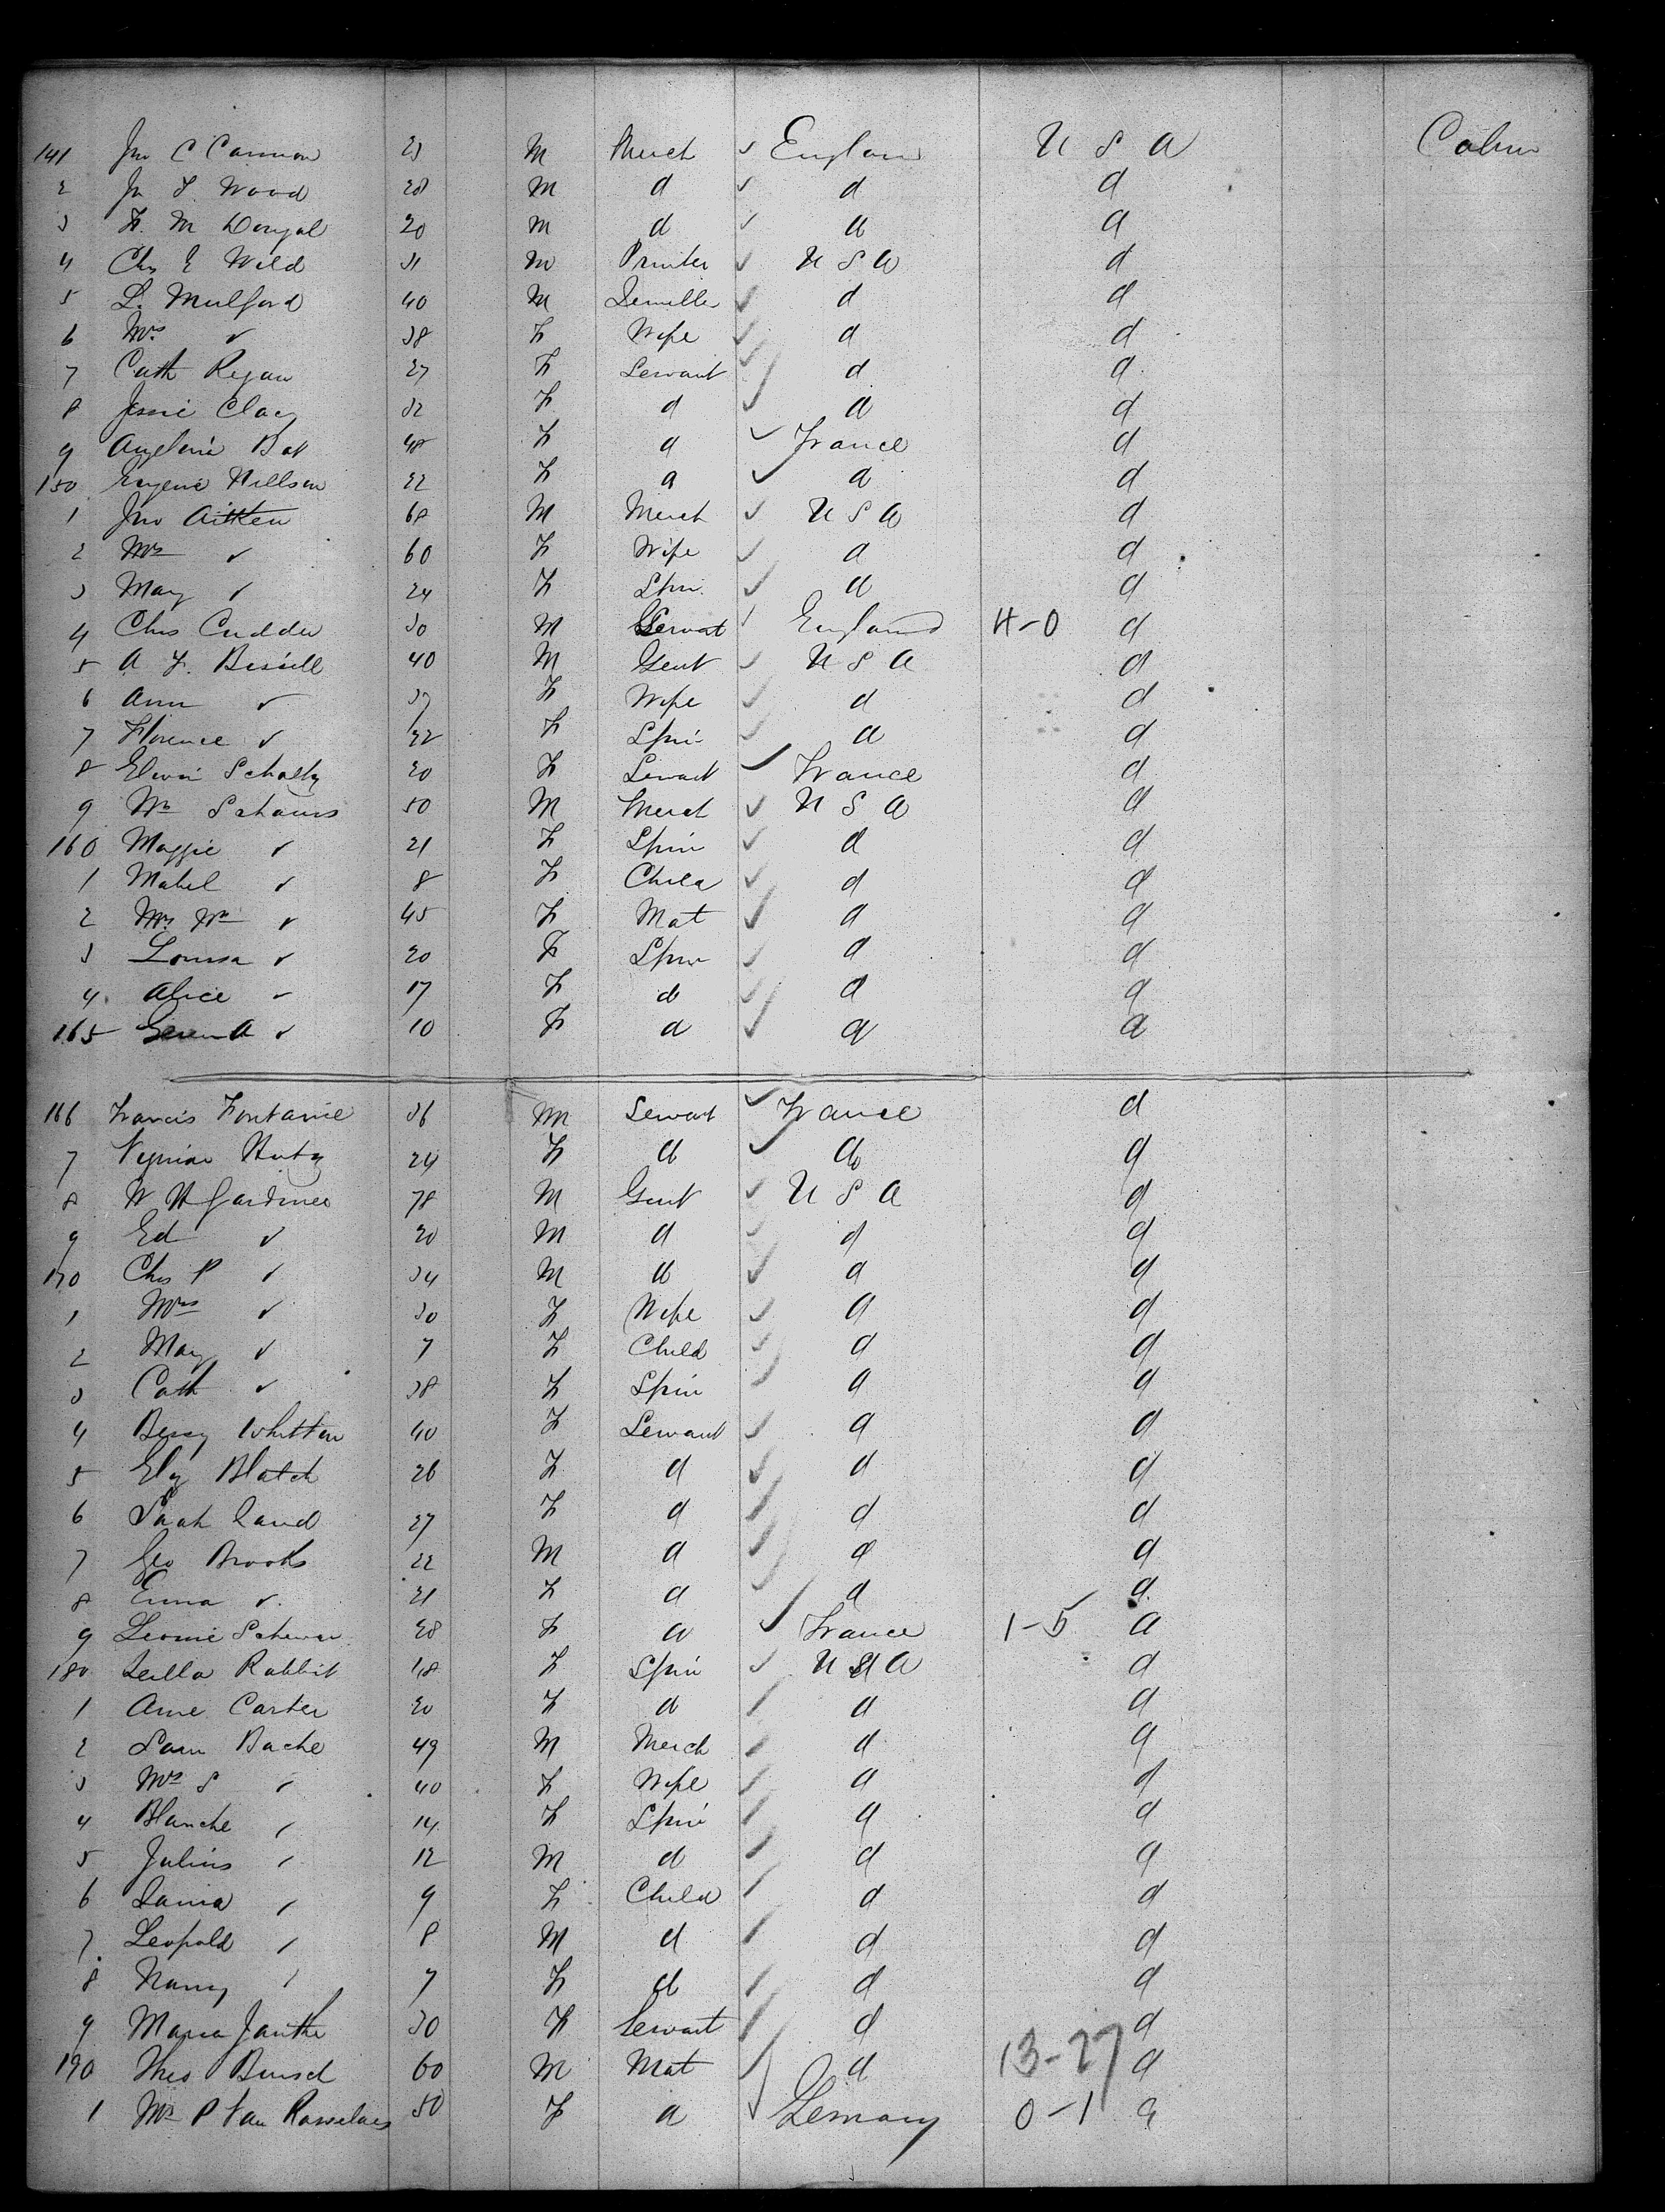 141 Jno C Cannon 23 M Merch ✓ England U S A Cabin
2 Jn T. Wood 28 M d ✓ d d
3 F. M 20 M d ✓ d d
4 Chs E Wild 31 M Printer ✓ U S A d
5 L. Mulford 40 M ✓ d d
6 Mrs ✓ 38 F Wife ✓ d d
7 Cath Regan 27 F Servant ✓ d d
8 Jessie Clacy 32 F d ✓ d d
9 Angelina Bat 48 F d ✓ France d
150 Eugenie Nillson 22 F d ✓ d d
1 Jno Aitken 68 M Merch ✓ U S A d
2 Mrs ✓ 60 F Wife ✓ d d
3 Mary ✓ 24 F Spin. ✓ d d
4 Chs 30 M Servat ✓ England 4-0 d
5 A F. Bissell 40 M Gent ✓ U S A d
6 Ann ✓ 37 F Wife ✓ d d
7 Florence ✓ 22 F Spin ✓ d d
8 Elwin 20 F Servant ✓ France d
9 Wm Schaus 50 M Merch ✓ U S A d
160 Maggie ✓ 21 F Spin ✓ d d
1 Mabel ✓ 8 F Child ✓ d d
2 Mrs Wm ✓ 45 F Mat ✓ d d
3 Louisa ✓ 20 F Spin ✓ d d
4 Alice ✓ 17 F d ✓ d d
165 ✓ 10 F d ✓ d d
166 Francis Fontaine 36 M Servant ✓ France d
7 24 F d ✓ do d
8 W H Gardiner 78 M Gent ✓ U S A d
9 Ed ✓ 20 M d ✓ d d
170 Chs P ✓ 34 M d ✓ d d
1 Mrs ✓ 30 F Wife ✓ d d
2 May ✓ 7 F Child ✓ d d
3 Cath ✓ 38 F Spin ✓ d d
4 Bessy Whitten 40 F Servant ✓ d d
5 Elz Blatch 26 F d ✓ d d
6 Sarah Land 27 F d ✓ d d
7 Geo Brooks 22 M d ✓ d d
8 Emma ✓ 21 F d ✓ d d
9 Leonie 28 F d ✓ France 1-5 d
180 Leilla Rabbit 18 F Spin ✓ U S A d
1 Ame Carter 20 F d ✓ d d
2 Sam Bache 49 M Merch ✓ d d
3 Mrs S ✓ 40 F Wife ✓ d d
4 Blanche ✓ 14 F Spin ✓ d d
5 Julius ✓ 12 M d ✓ d d
6 ✓ 9 F Child ✓ d d
7 Leopold ✓ 8 M d ✓ d d
8 Nancy ✓ 7 F d ✓ d d
9 Maria 30 F Servant ✓ d d
190 Theo 60 M Mat ✓ d 13-27 d
1 Mrs P Van 50 F d ✓ Germany 0-1 d